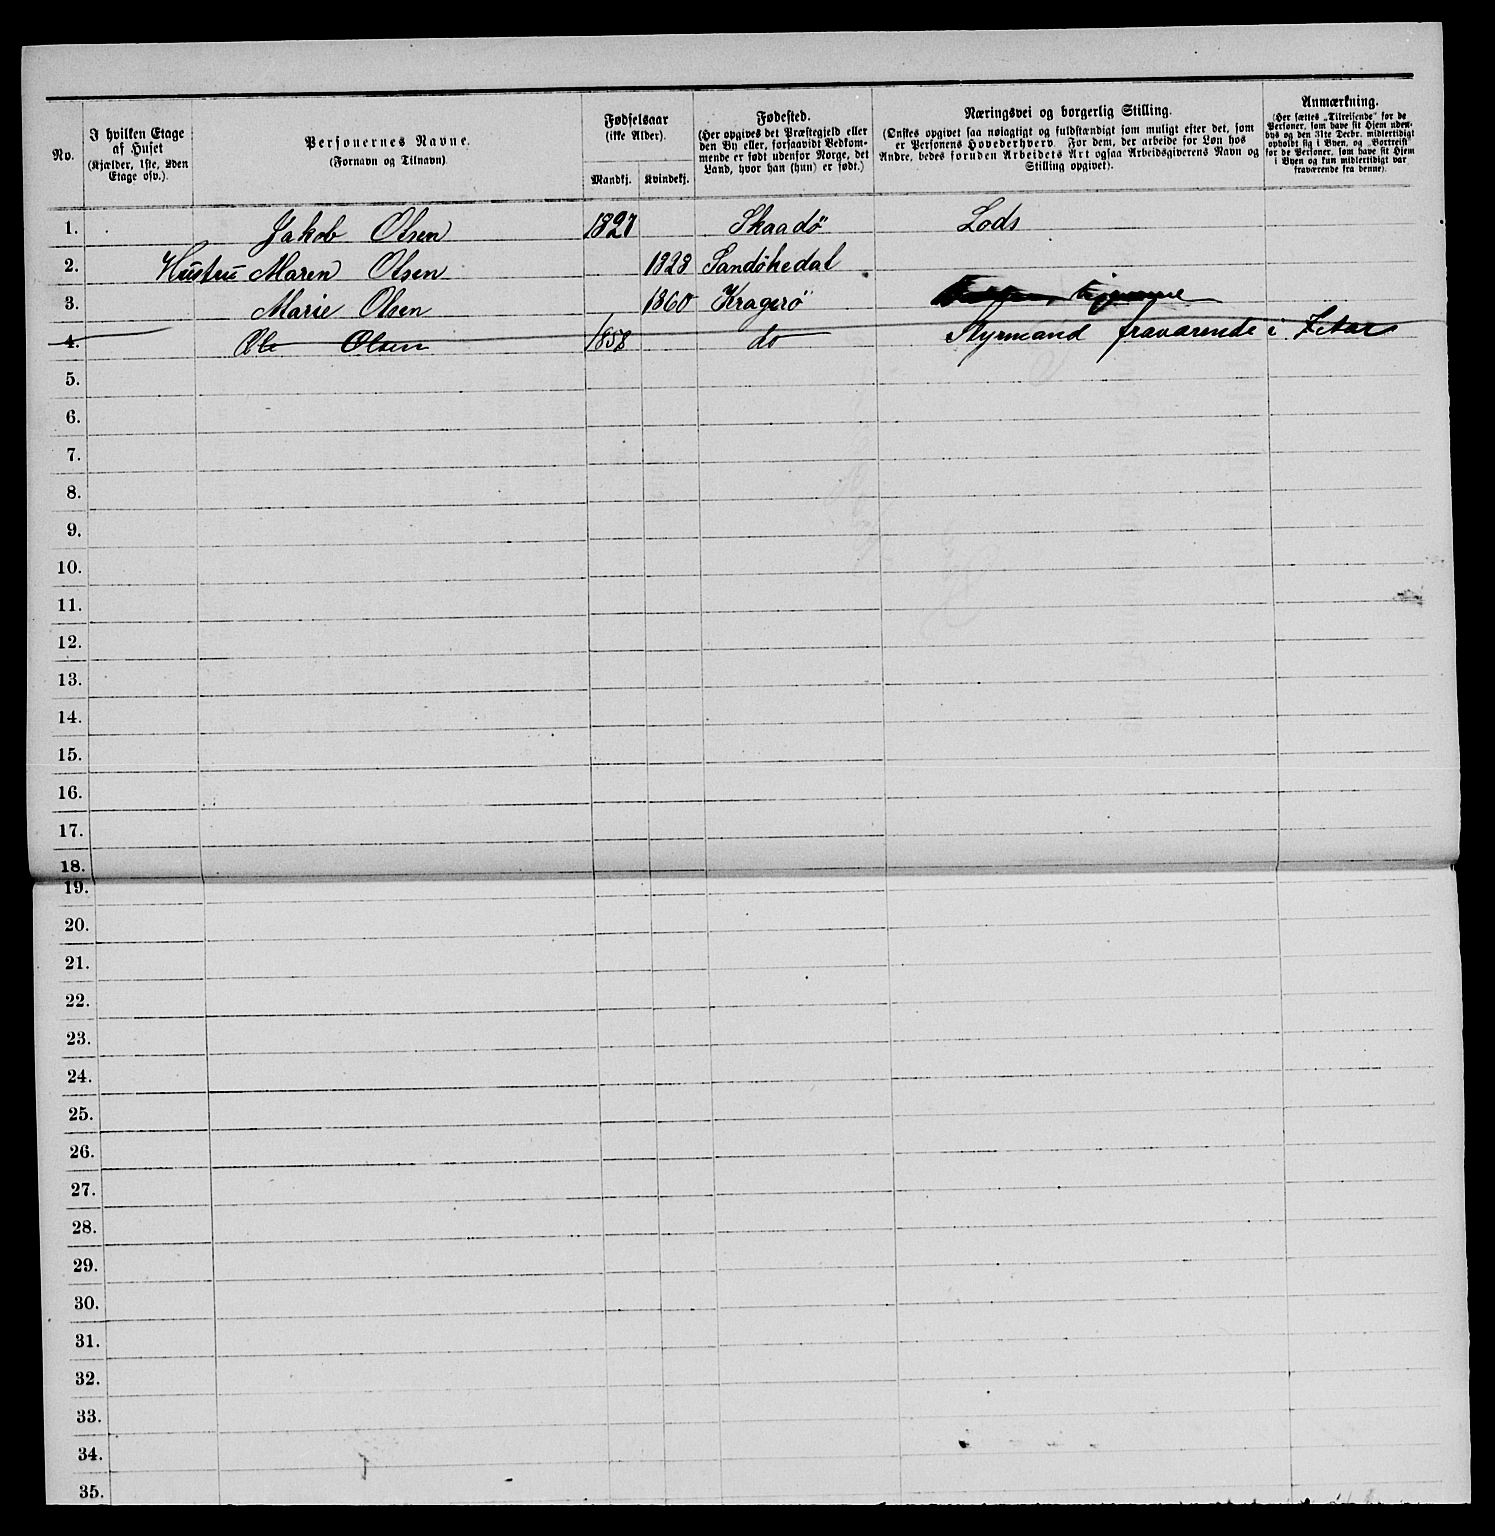 No.
I hvilken Etage af Huset (Kjælder, 1ste, 2den Etage osv.).
Personernes Navne. (Fornavn og Tilnavn).
Fødselsaar (ikke Alder).
Mandkj. Kvindekj.
Fødested.
(Her opgives det Præstegjeld eller
den By eller, forsaavidt Vedkom-
mende er født udenfor Norge, det
Land, hvor han (hun) er født.)
Næringsvei og borgerlig Stilling.
(Ønskes opgivet saa nøiagtigt og fuldstændigt som muligt efter det, som
er Personens Hovederhverv. For dem, der arbeide for Løn hos
Andre, bedes foruden Arbeidets Art ogsaa Arbeidsgiverens Navn og
Stilling opgivet).
Anmærkning.
(Her sættes „Tilreisende" for de
Personer, som have sit Hjem uden-
bys og den 31te Decbr. midlertidigt
opholdt sig i Byen, og „Bortreist"
for de Personer, som have sit Hjem
i Byen og kun midlertidigt var
fraværende fra denne).
1. Jakob Olsen 1827 Skaadö Lods
2. Hustru Maren Olsen 1823 Sandökedal
3. Marie Olsen 1860 Kragerö hjemme
4. Ole Olsen 1858 do Styrmand fraværende i
5.
6.
7.
8.
9.
10.
11.
12.
13.
14.
15.
16.
17.
18.
19.
20.
21.
22.
23.
24.
25.
26.
27.
28.
29.
30.
31.
32.
33.
34.
35.